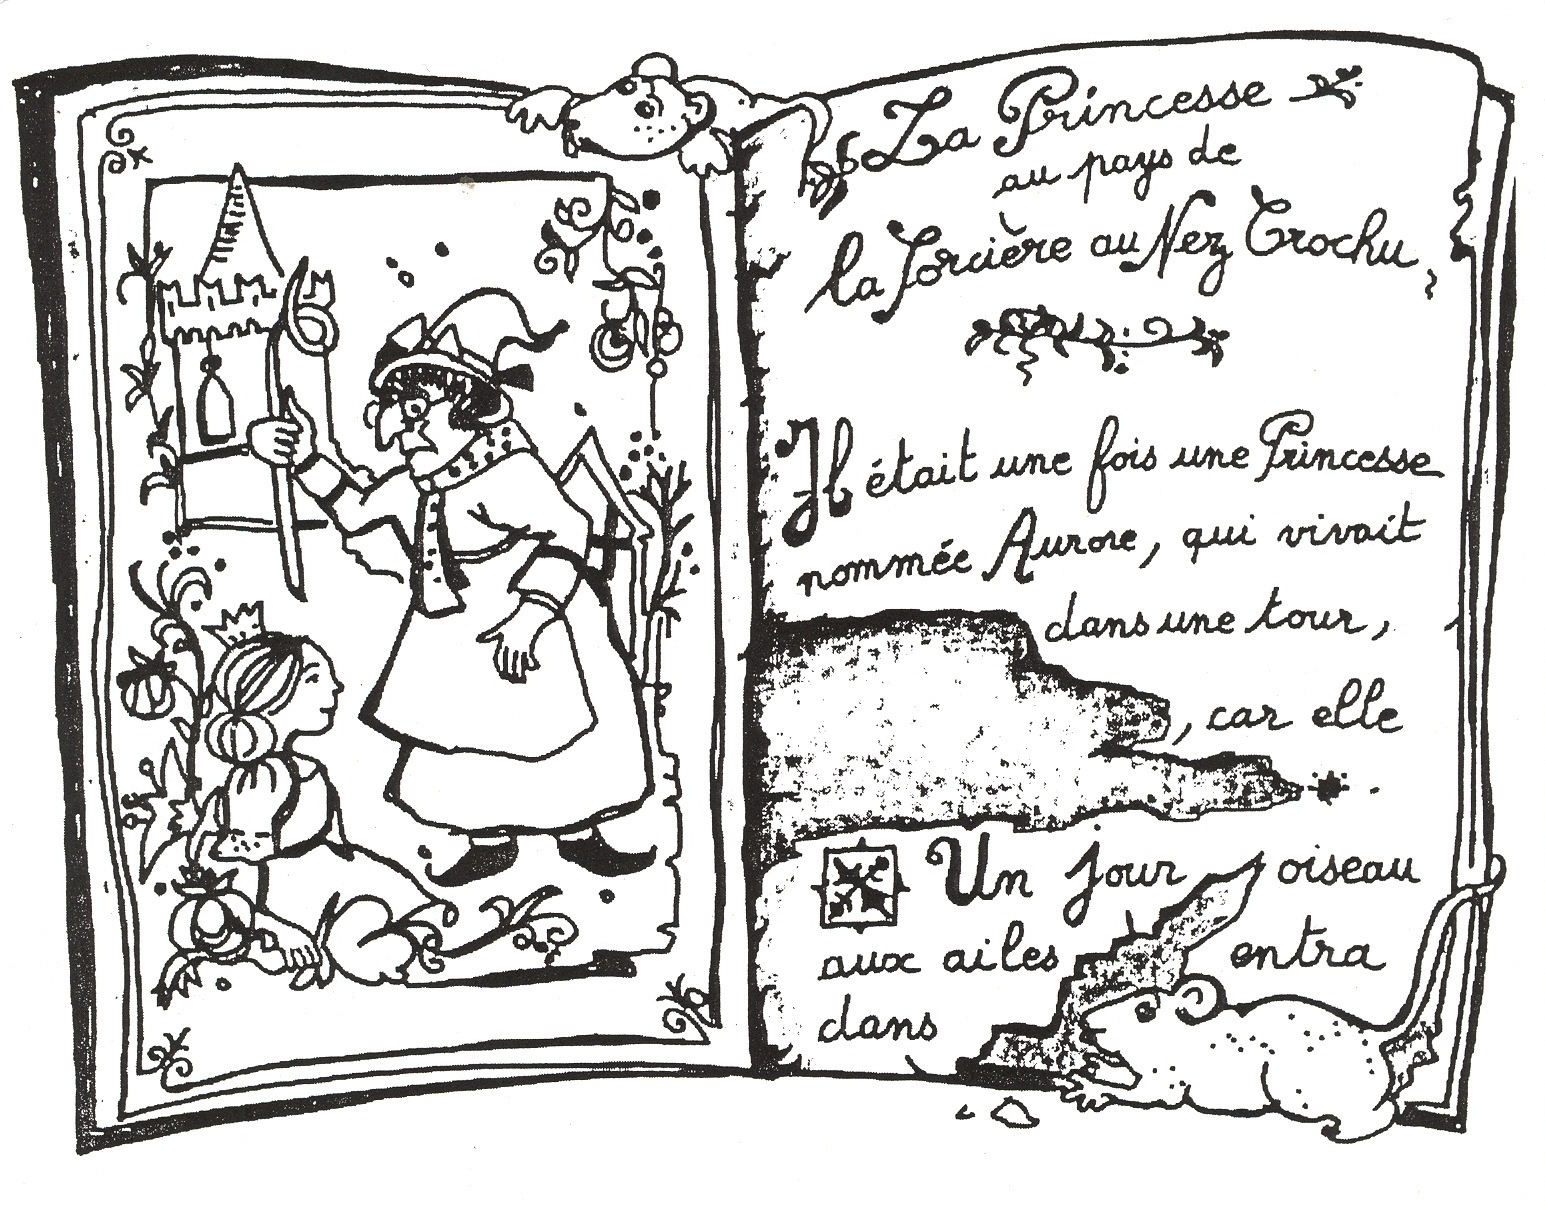 La Princesse
au pays de
la Sorcière au Nez Crochu
Il était une fois une Princesse
nommée Aurore, qui vivait
dans une tour,
, car elle
.
Un jour oiseau
aux ailes entra
dans